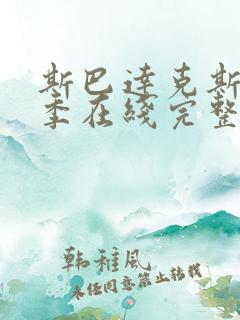 斯巴达克斯
季在线完整
韩稚风
未经同意禁止转载